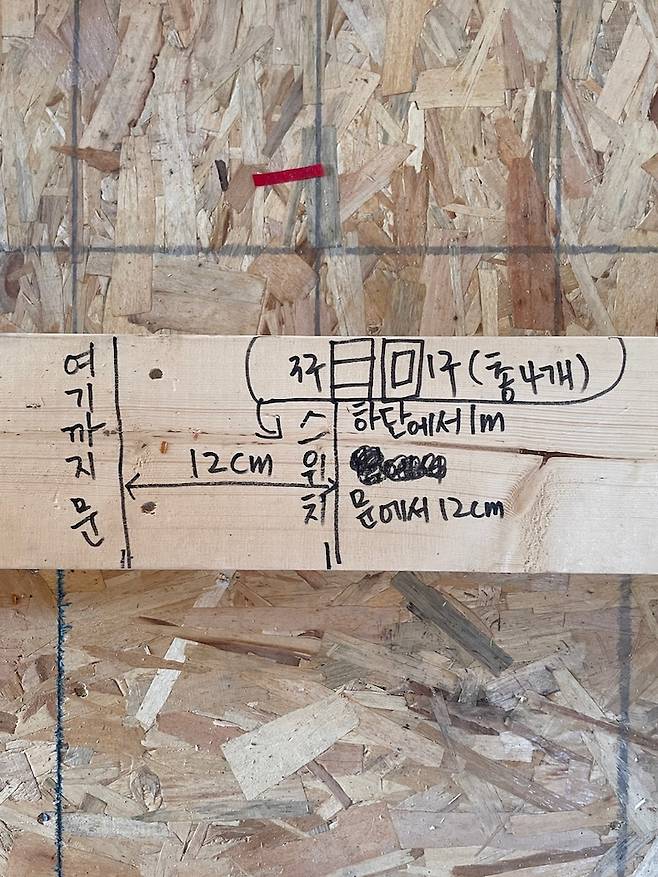 여기까지 문
3구 1구 (총 4개)
스위치
하단에서 1m
12cm
문에서 12cm